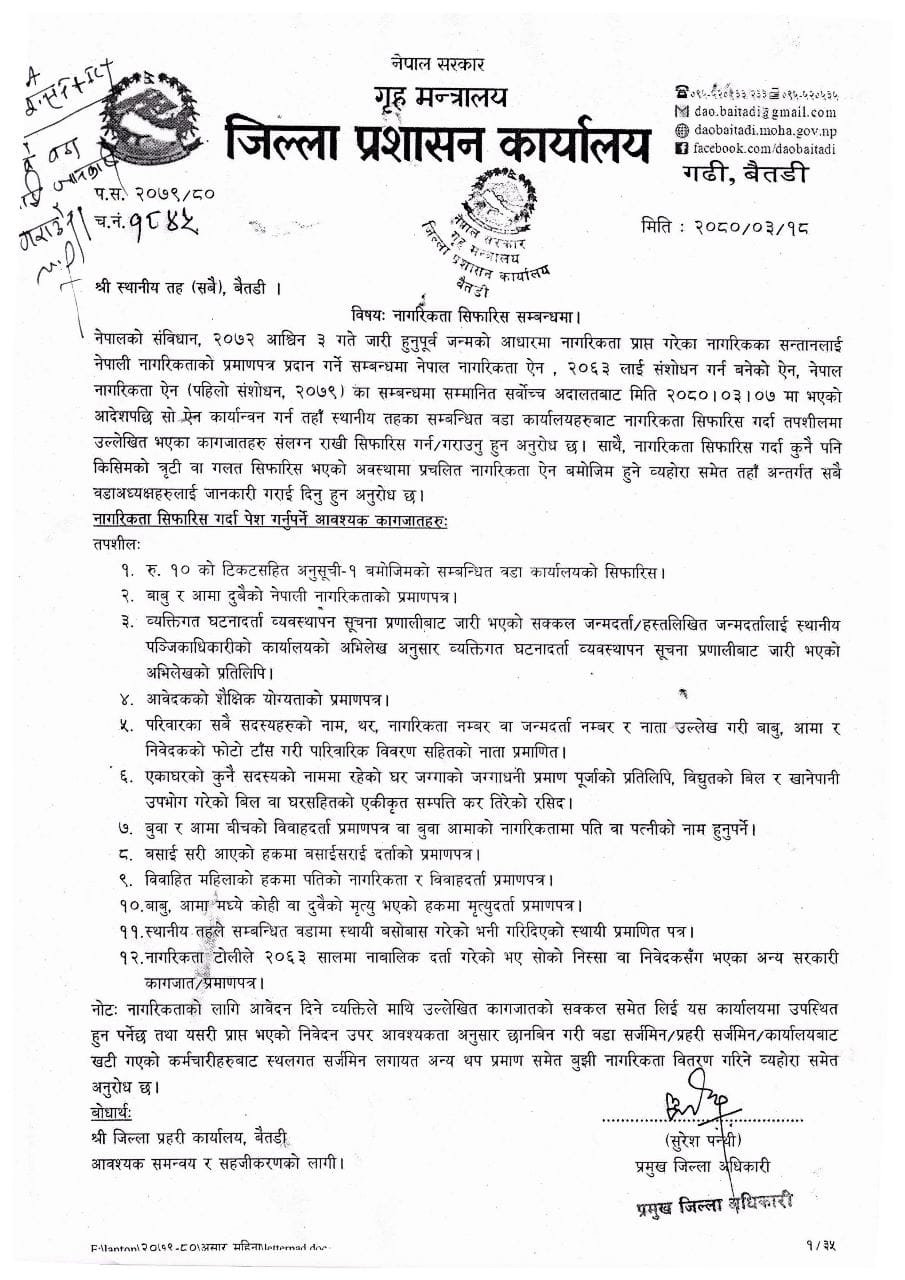 नेपाल सरकार
गृह मन्त्रालय
जिल्ला प्रशासन कार्यालय
dao.baitadi@gmail.com
daobaitadi.moha.gov.np
facebook.com/daobaitadi
गढी, बैतडी
प.स. २०७९/८०
च.नं. १८४५
नेपाल सरकार
गृह मन्त्रालय
जिल्ला प्रशासन कार्यालय
बैतडी
मिति : २०८०/०३/१८
श्री स्थानीय तह (सबै), बैतडी ।
विषयः नागरिकता सिफारिस सम्बन्धमा।
नेपालको संविधान, २०७२ आश्विन ३ गते जारी हुनुपूर्व जन्मको आधारमा नागरिकता प्राप्त गरेका नागरिकका सन्तानलाई
नेपाली नागरिकताको प्रमाणपत्र प्रदान गर्ने सम्बन्धमा नेपाल नागरिकता ऐन , २०६३ लाई संशोधन गर्न बनेको ऐन, नेपाल
नागरिकता ऐन (पहिलो संशोधन, २०७९) का सम्बन्धमा सम्मानित सर्वोच्च अदालतबाट मिति २०८०।०३।०७ मा भएको
आदेशपछि सो ऐन कार्यान्वन गर्न तहाँ स्थानीय तहका सम्बन्धित वडा कार्यालयहरुबाट नागरिकता सिफारिस गर्दा तपशीलमा
उल्लेखित भएका कागजातहरु संलग्न राखी सिफारिस गर्न/गराउनु हुन अनुरोध छ। साथै, नागरिकता सिफारिस गर्दा कुनै पनि
किसिमको त्रृटी वा गलत सिफारिस भएको अवस्थामा प्रचलित नागरिकता ऐन बमोजिम हुने व्यहोरा समेत तहाँ अन्तर्गत सबै
वडाअध्यक्षहरुलाई जानकारी गराई दिनु हुन अनुरोध छ।
नागरिकता सिफारिस गर्दा पेश गर्नुपर्ने आवश्यक कागजातहरुः
तपशीलः
१. रु. १० को टिकटसहित अनुसूची-१ बमोजिमको सम्बन्धित वडा कार्यालयको सिफारिस।
२. बाबु र आमा दुबैको नेपाली नागरिकताको प्रमाणपत्र।
३. व्यक्तिगत घटनादर्ता व्यवस्थापन सूचना प्रणालीबाट जारी भएको सक्कल जन्मदर्ता/हस्तलिखित जन्मदर्तालाई स्थानीय
पञ्जिकाधिकारीको कार्यालयको अभिलेख अनुसार व्यक्तिगत घटनादर्ता व्यवस्थापन सूचना प्रणालीबाट जारी भएको
अभिलेखको प्रतिलिपि।
४. आवेदकको शैक्षिक योग्यताको प्रमाणपत्र।
५. परिवारका सबै सदस्यहरुको नाम, थर, नागरिकता नम्बर वा जन्मदर्ता नम्बर र नाता उल्लेख गरी बाबु, आमा र
निवेदकको फोटो टाँस गरी पारिवारिक विवरण सहितको नाता प्रमाणित।
६. एकाघरको कुनै सदस्यको नाममा रहेको घर जग्गाको जग्गाधनी प्रमाण पूर्जाको प्रतिलिपि, विद्युतको बिल र खानेपानी
उपभोग गरेको बिल वा घरसहितको एकीकृत सम्पत्ति कर तिरेको रसिद।
७. बुवा र आमा बीचको विवाहदर्ता प्रमाणपत्र वा बुवा आमाको नागरिकतामा पति वा पत्नीको नाम हुनुपर्ने।
८. बसाई सरी आएको हकमा बसाईसराई दर्ताको प्रमाणपत्र।
९. विवाहित महिलाको हकमा पतिको नागरिकता र विवाहदर्ता प्रमाणपत्र।
१०.बाबु, आमा मध्ये कोही वा दुवैको मृत्यु भएको हकमा मृत्युदर्ता प्रमाणपत्र।
११.स्थानीय तहले सम्बन्धित वडामा स्थायी बसोबास गरेको भनी गरिदिएको स्थायी प्रमाणित पत्र।
१२.नागरिकता टोलीले २०६३ सालमा नाबालिक दर्ता गरेको भए सोको निस्सा वा निवेदकसँग भएका अन्य सरकारी
कागजात/प्रमाणपत्र।
नोटः नागरिकताको लागि आवेदन दिने व्यक्तिले माथि उल्लेखित कागजातको सक्कल समेत लिई यस कार्यालयमा उपस्थित
हुन पर्नेछ तथा यसरी प्राप्त भएको निवेदन उपर आवश्यकता अनुसार छानबिन गरी वडा सर्जमिन/प्रहरी सर्जमिन/कार्यालयबाट
खटी गएको कर्मचारीहरुबाट स्थलगत सर्जमिन लगायत अन्य थप प्रमाण समेत बुझी नागरिकता वितरण गरिने व्यहोरा समेत
अनुरोध छ।
बोधार्थः
श्री जिल्ला प्रहरी कार्यालय, बैतडी
आवश्यक समन्वय र सहजीकरणको लागी।
(सुरेश पन्थी)
प्रमुख जिल्ला अधिकारी
प्रमुख जिल्ला अधिकारी
१/३५